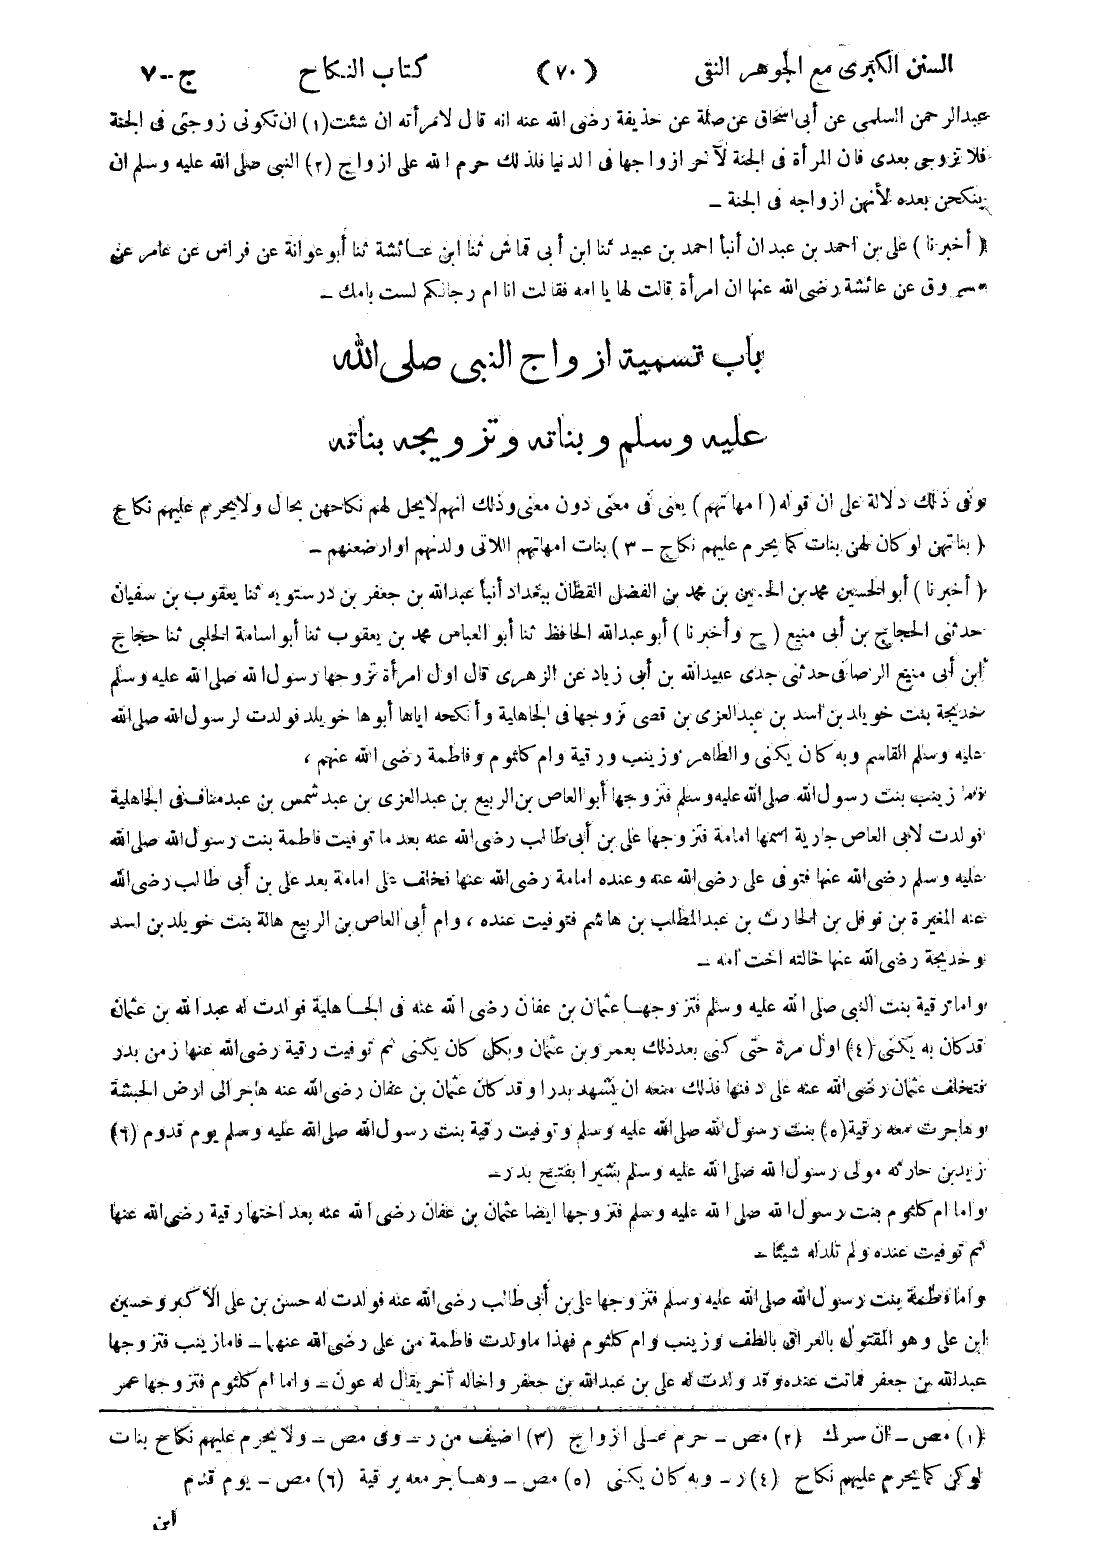 السنن الكبرى مع الجوهر النقى (٧٠) كتاب النكاح ج-٧
عبدالرحمن السلمى عن أبى اسحاق عن صلة عن حذيفة رضى الله عنه انه قال لامرأته ان شئت (١) ان تكونى زوجتى فى الجنة
فلا تزوجى بعدى فان المرأة فى الجنة لآخر ازواجها فى الدنيا فلذلك حرم الله على ازواج (٢) النبى صلى الله عليه وسلم ان
ينكحن بعده لأنهن ازواجه فى الجنة -
(أخبرنا) على بن احمد بن عبدان أنبأ احمد بن عبيد ثنا ابن أبى قماش ثنا ابن عائشة ثنا أبو عوانة عن فراض عن عامر عن
مسروق عن عائشة رضى الله عنها ان امرأة قالت لها يا امه فقالت انا ام رجالكم لست بامك -
باب تسمية ازواج النبى صلى الله
عليه وسلم وبناته وتزويجه بناته
وفى ذلك دلالة على ان قوله (امهاتهم) يعنى فى معنى دون معنى وذلك انهم لا يحل لهم نكاحهن بحال ولا يحرم عليهم نكاح
(بناتهن لو كان لهن بنات كما يحرم عليهم نكاح - ٣) بنات امهاتهم اللاتى ولدنهم او ارضعنهم -
(أخبرنا) أبو الحسين محمد بن الحسين بن محمد بن الفضل القطان ببغداد أنبأ عبدالله بن جعفر بن درستويه ثنا يعقوب بن سفيان
حدثنى الحجاج بن أبى منيع (ح وأخبرنا) أبو عبدالله الحافظ ثنا أبو العباس محمد بن يعقوب ثنا أبو اسامة الحلبى ثنا حجاج
ابن أبى منيع الرصافى حدثنى جدى عبيدالله بن أبى زياد عن الزهرى قال اول امرأة تزوجها رسول الله صلى الله عليه وسلم
خديجة بنت خويلد بن اسد بن عبدالعزى بن قصى تزوجها فى الجاهلية وأنكحه اياها أبوها خويلد فولدت لرسول الله صلى الله
عليه وسلم القاسم وبه كان يكنى والطاهر وزينب ورقية وام كلثوم وفاطمة رضى الله عنهم ،
فاما زينب بنت رسول الله صلى الله عليه وسلم فتزوجها أبو العاص بن الربيع بن عبدالعزى بن عبد شمس بن عبد مناف فى الجاهلية
فولدت لابى العاص جارية اسمها امامة فتزوجها على بن أبى طالب رضى الله عنه بعد ما توفيت فاطمة بنت رسول الله صلى الله
عليه وسلم رضى الله عنها فتوفى على رضى الله عنه وعنده امامة رضى الله عنها فخلف على امامة بعد على بن أبى طالب رضى الله
عنه المغيرة بن نوفل بن الحارث بن عبدالمطلب بن هاشم فتوفيت عنده ، وام أبى العاص بن الربيع هالة بنت خويلد بن اسد
وخديجة رضى الله عنها خالته اخت امه -
واما رقية بنت النبى صلى الله عليه وسلم فتزوجها عثمان بن عفان رضى الله عنه فى الجاهلية فولدت له عبدالله بن عثمان
قد كان به يكنى (٤) اول مرة حتى كنى بعد ذلك بعمرو بن عثمان وبكل كان يكنى ثم توفيت رقية رضى الله عنها زمن بدر
فتخلف عثمان رضى الله عنه على دفنها فذلك منعه ان يشهد بدرا وقد كان عثمان بن عفان رضى الله عنه هاجر الى ارض الحبشة
وهاجرت معه رقية (٥) بنت رسول الله صلى الله عليه وسلم وتوفيت رقية بنت رسول الله صلى الله عليه وسلم يوم قدوم (٦)
زيد بن حارثه مولى رسول الله صلى الله عليه وسلم بشيرا بفتح بدر -
واما ام كلثوم بنت رسول الله صلى الله عليه وسلم فتزوجها ايضا عثمان بن عفان رضى الله عنه بعد اختها رقية رضى الله عنها
ثم توفيت عنده ولم تلد له شيئا -
واما فاطمة بنت رسول الله صلى الله عليه وسلم فتزوجها على بن أبى طالب رضى الله عنه فولدت له حسن بن على الاكبر وحسين
ابن على وهو المقتول بالعراق بالطف وزينب وام كلثوم فهذا ما ولدت فاطمة من على رضى الله عنهما - فاما زينب فتزوجها
عبدالله بن جعفر فماتت عنده وقد ولدت له على بن عبدالله بن جعفر واخا له آخر يقال له عون - واما ام كلثوم فتزوجها عمر
(١) مص - ان سرك (٢) مص - حرم على ازواج (٣) اضيف من ر - وفى مص - ولا يحرم عليهم نكاح بنات
لو كن كما يحرم عليهم نكاح (٤) ر - وبه كان يكنى (٥) مص - وهاجر معه برقية (٦) مص - يوم قدم
ابن